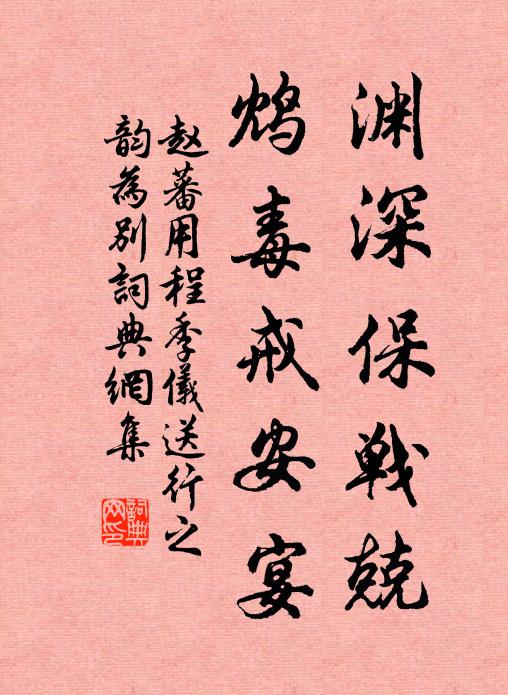 渊深保戦兢
鸩毒戒安宴
赵蕃用程季儀送行之
韵為别詞典網集
詞典网印